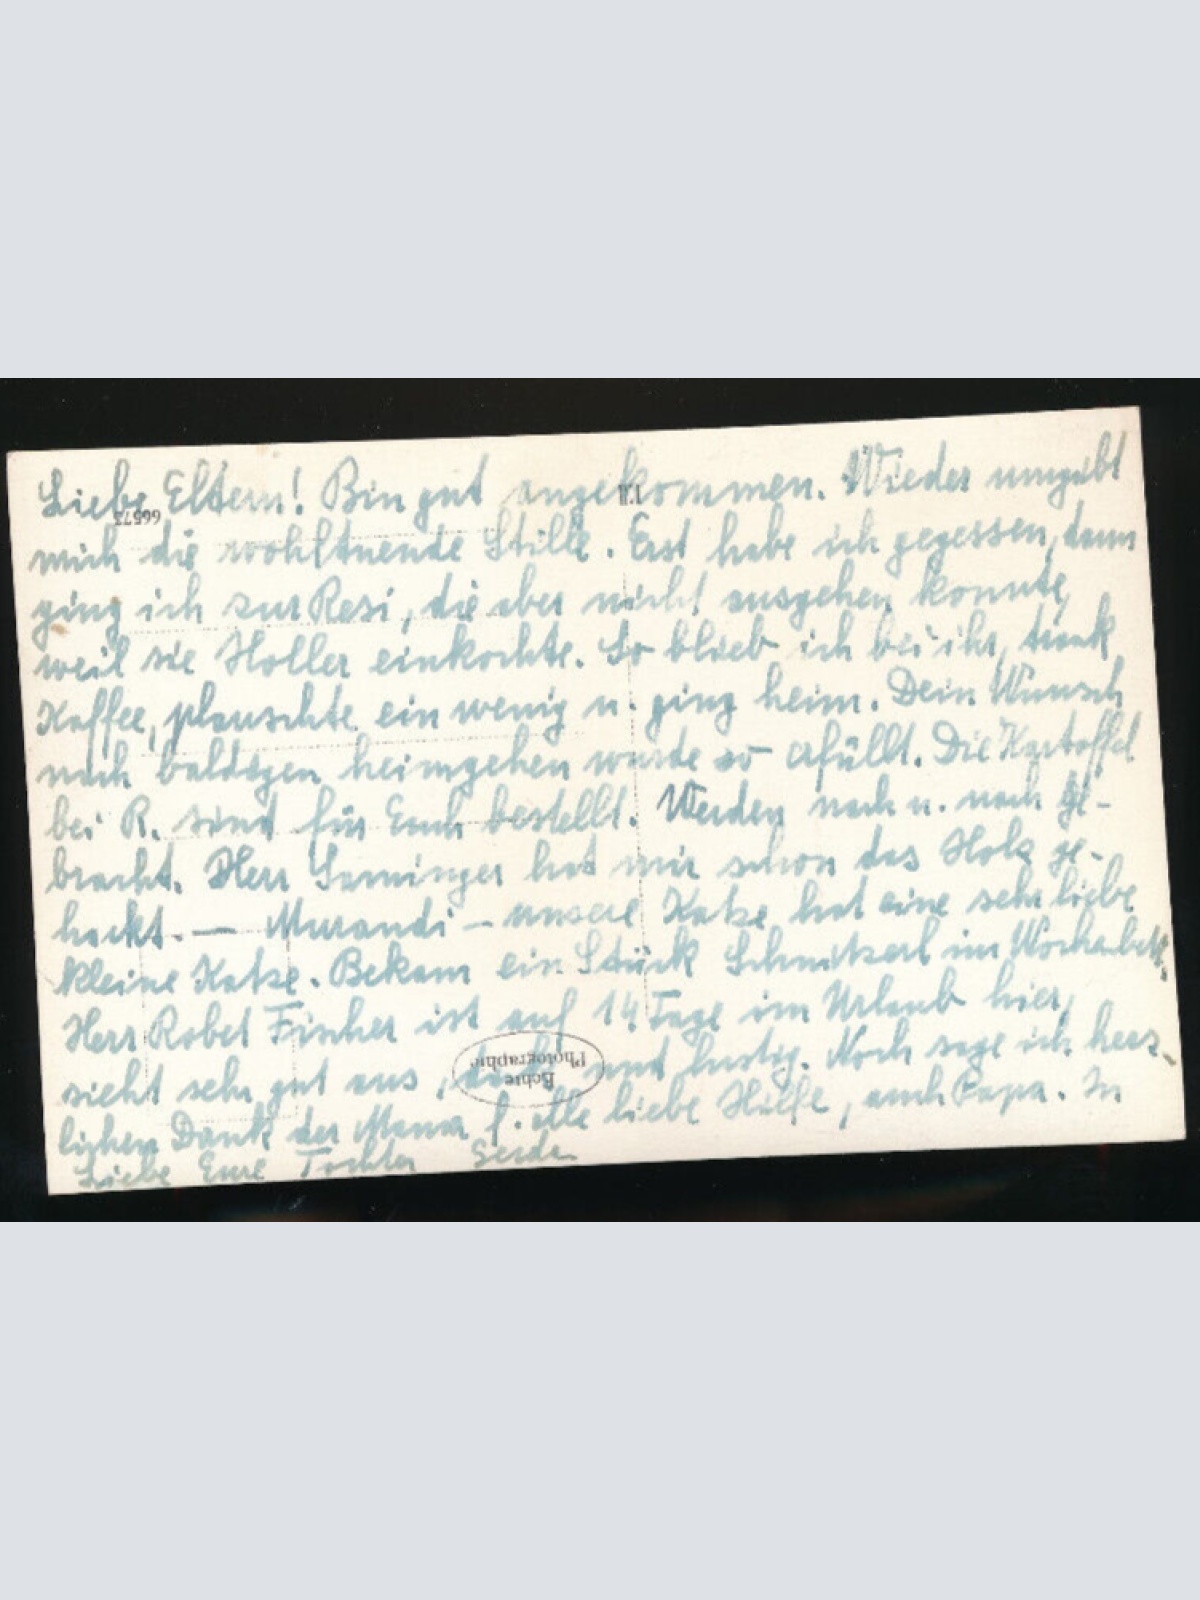 Liebe Eltern! Bin gut angekommen. Wieder umgibt
66573
mich die wohltuende Stille. Erst habe ich gegessen, dann
ging ich zur Resi, die aber nicht ausgehen konnte,
weil sie Holler einkochte. So blieb ich bei ihr, trank
Kaffee, plauschte ein wenig u. ging heim. Dein Wunsch
nach baldigen heimgehen wurde so erfüllt. Die Kartoffel
bei R. sind für Euch bestellt. Werden nach u. nach ge-
bracht. Herr Saminger hat mir schon das Holz ge-
hackt. — Murandi – unsere Katze hat eine sehr liebe
kleine Katze. Bekam ein Stück Schnitzerl im Wochenbett.
Herr Robert Fischer ist auf 14 Tage im Urlaub hier,
sieht sehr gut aus, und lustig. Noch sage ich herz-
Echte
Photographie
lichen Dank der Mama f. alle liebe Hilfe, auch Papa. In
Liebe Eure Tochter Gerda